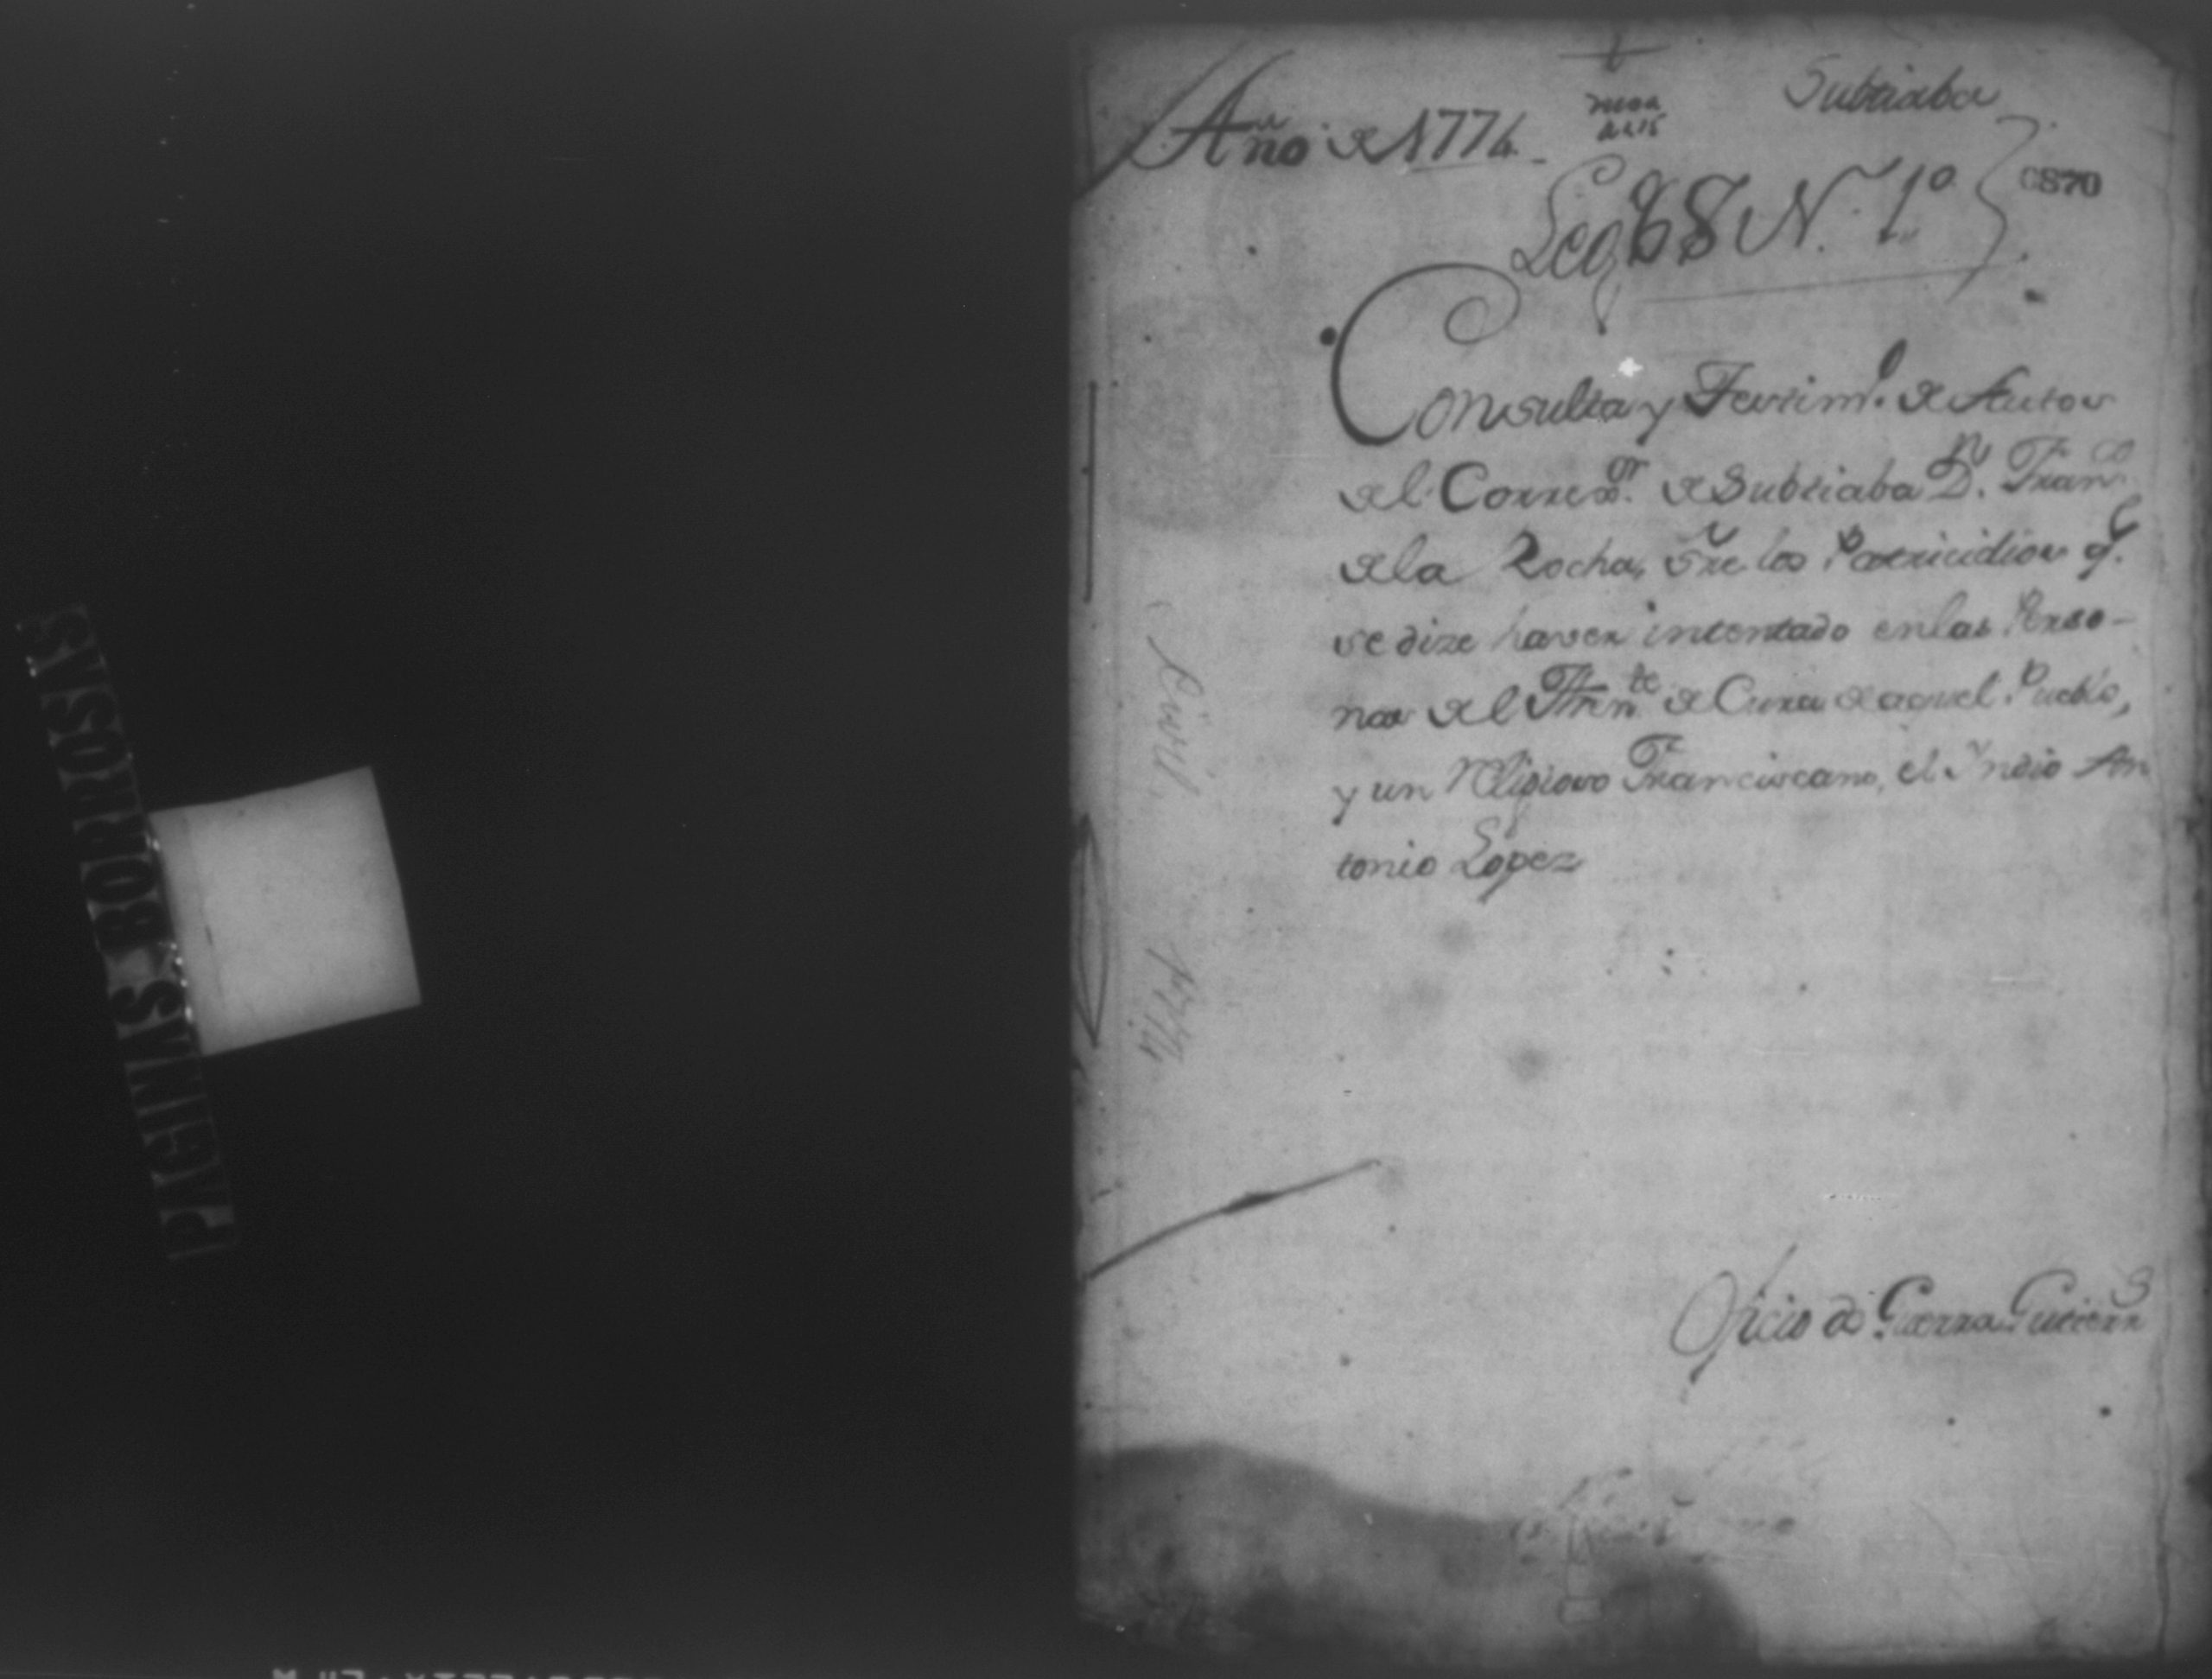 Subtiaba
Año de 1774
Leg 68 N. 1º
0870
Consulta y Testim.º de Autos
del Correx.or de Subtiaba D.n Fran.co
de la Rocha, sre los Parricidios q.e
se dize haver intentado en las Perso-
nas del Then.te de Cura de aquel Pueblo,
y un Religioso Franciscano, el Yndio An
tonio Lopez
Civil
1774
Oficio de Guerra Gutierrs
PAGINAS BORROSAS